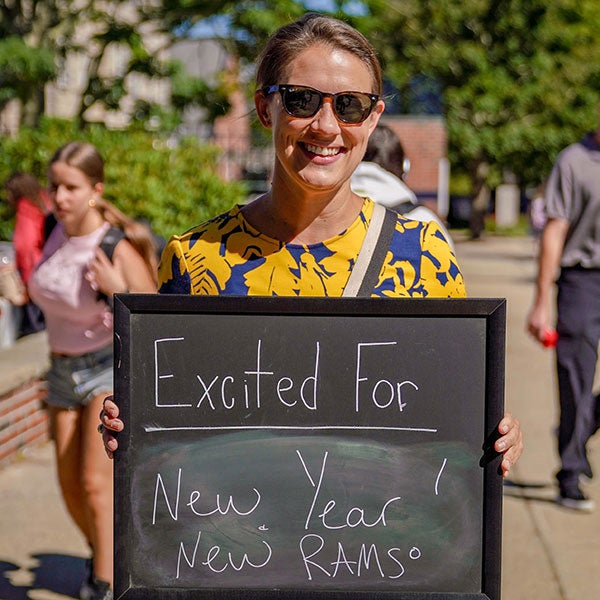 Excited For
New Year!
New RAMS